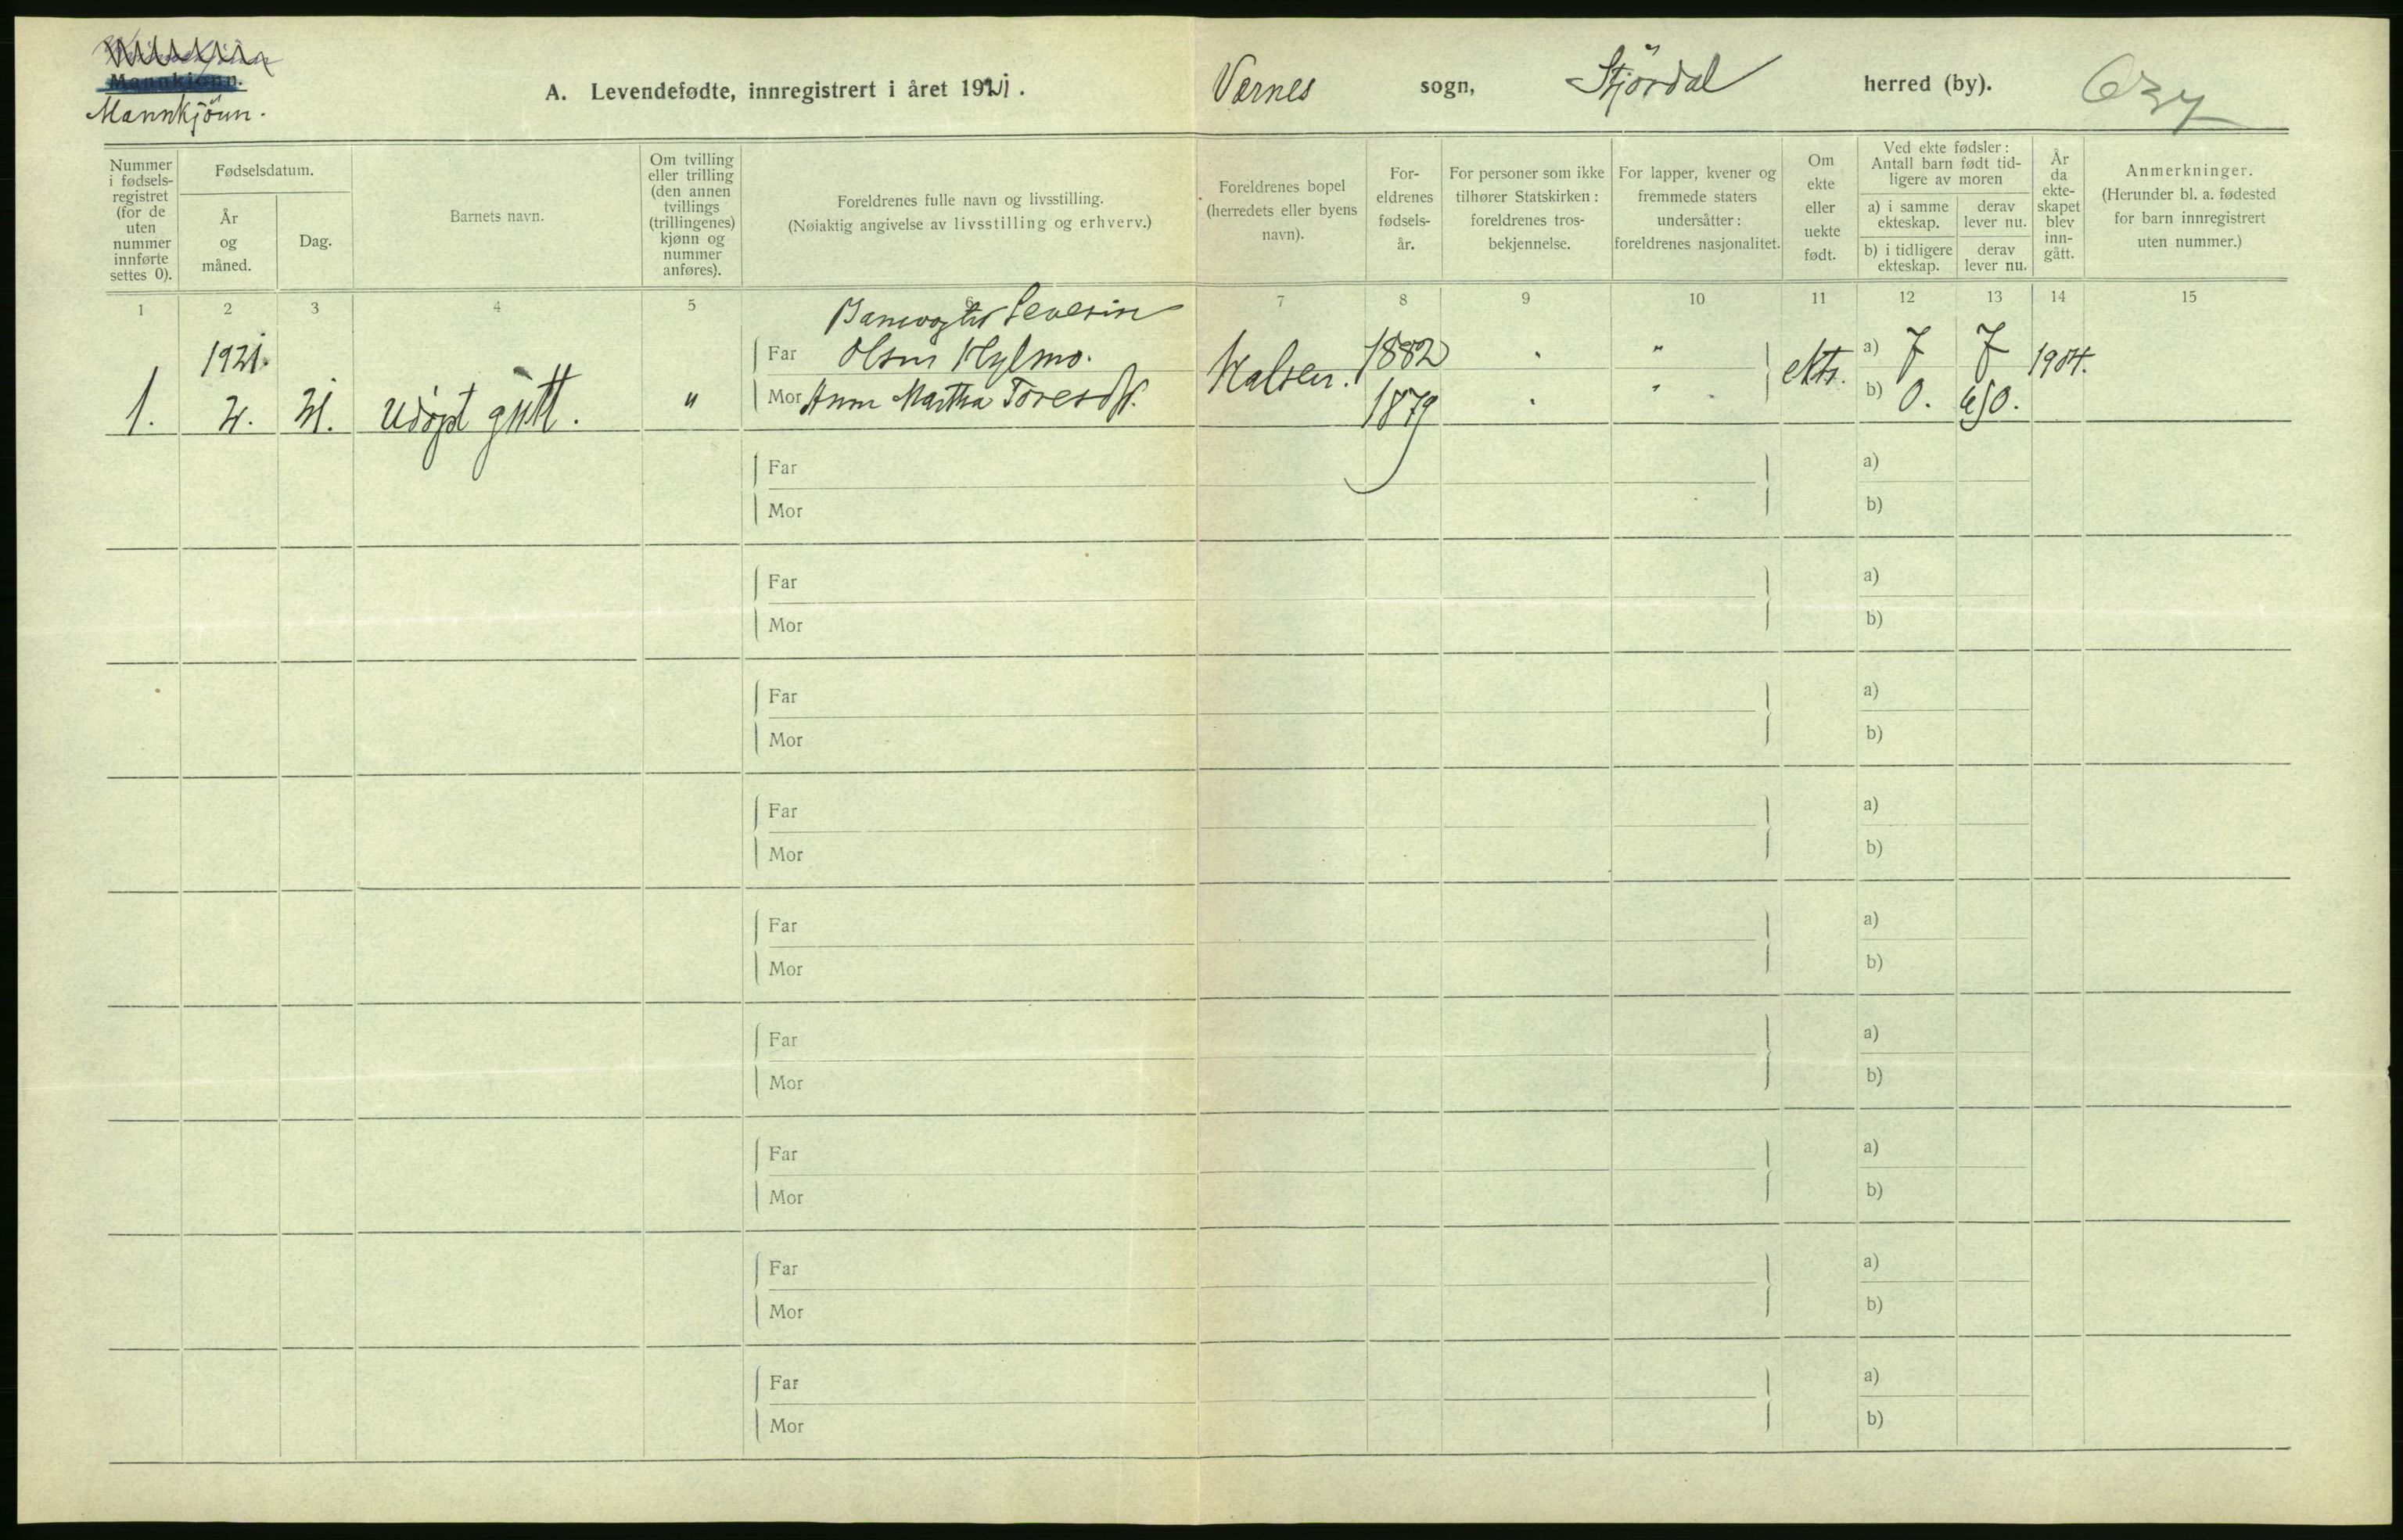 Mannkjønn.
Mannkjönn.
A. Levendefødte, innregistrert i året 1921.
Værnes sogn, Stjördal herred (by).
Nummer i fødsels-registret (for de uten nummer innførte settes 0).
Fødselsdatum.
År og måned.
Dag.
Barnets navn.
Om tvilling eller trilling (den annen tvillings (trillingenes) kjønn og nummer anføres).
Foreldrenes fulle navn og livsstilling.
(Nøiaktig angivelse av livsstilling og erhverv.)
Foreldrenes bopel (herredets eller byens navn).
For-eldrenes fødsels-år.
For personer som ikke tilhører Statskirken: foreldrenes tros-bekjennelse.
For lapper, kvener og fremmede staters undersåtter: foreldrenes nasjonalitet.
Om ekte eller uekte født.
Ved ekte fødsler: Antall barn født tid-ligere av moren
a) i samme ekteskap.
derav lever nu.
b) i tidligere ekteskap.
derav lever nu.
År da ekte-skapet blev inn-gått.
Anmerkninger.
(Herunder bl. a. fødested for barn innregistrert uten nummer.)
1 2 3 4 5 6 7 8 9 10 11 12 13 14 15
Banevogter Severin
1921. Far Olsen Hylmo. 1882 " " a) 7 7 1904.
1. 2. 21. Udøpt gutt. " Mor Anna Martha Toresdt. 1879 " " ekte. b) 0. 0.
Far a)
Mor b)
Far a)
Mor b)
Far a)
Mor b)
Far a)
Mor b)
Far a)
Mor b)
Far a)
Mor b)
Far a)
Mor b)
Far a)
Mor b)
Far a)
Mor b)